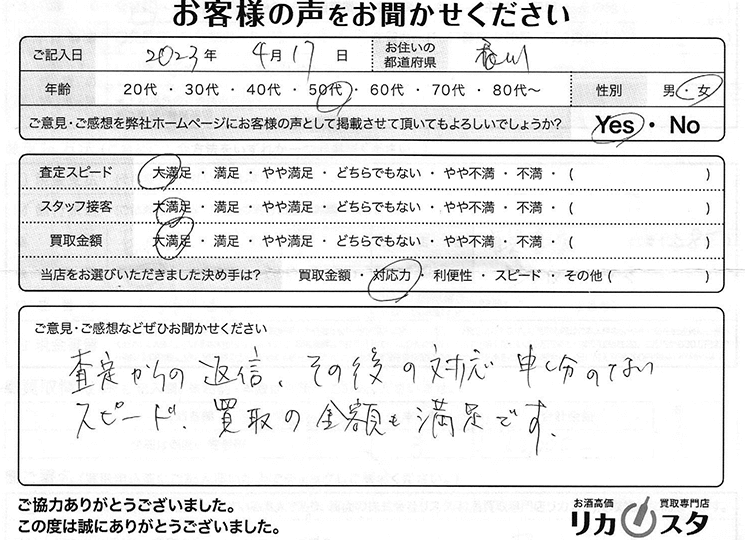 お客様の声をお聞かせください
ご記入日 2023年 4月17日 お住いの都道府県 香川
年齢 20代 ・ 30代 ・ 40代 ・ 50代 ・ 60代 ・ 70代 ・ 80代〜 性別 男 ・ 女
ご意見・ご感想を弊社ホームページにお客様の声として掲載させて頂いてもよろしいでしょうか? Yes ・ No
査定スピード 大満足 ・ 満足 ・ やや満足 ・ どちらでもない ・ やや不満 ・ 不満 ・ ( )
スタッフ接客 大満足 ・ 満足 ・ やや満足 ・ どちらでもない ・ やや不満 ・ 不満 ・ ( )
買取金額 大満足 ・ 満足 ・ やや満足 ・ どちらでもない ・ やや不満 ・ 不満 ・ ( )
当店をお選びいただきました決め手は? 買取金額 ・ 対応力 ・ 利便性 ・ スピード ・ その他 ( )
ご意見・ご感想などぜひお聞かせください
査定からの返信、その後の対応申し分のない
スピード、買取の金額も満足です.
ご協力ありがとうございました。
この度は誠にありがとうございました。
お酒高価 買取専門店
リカスタ